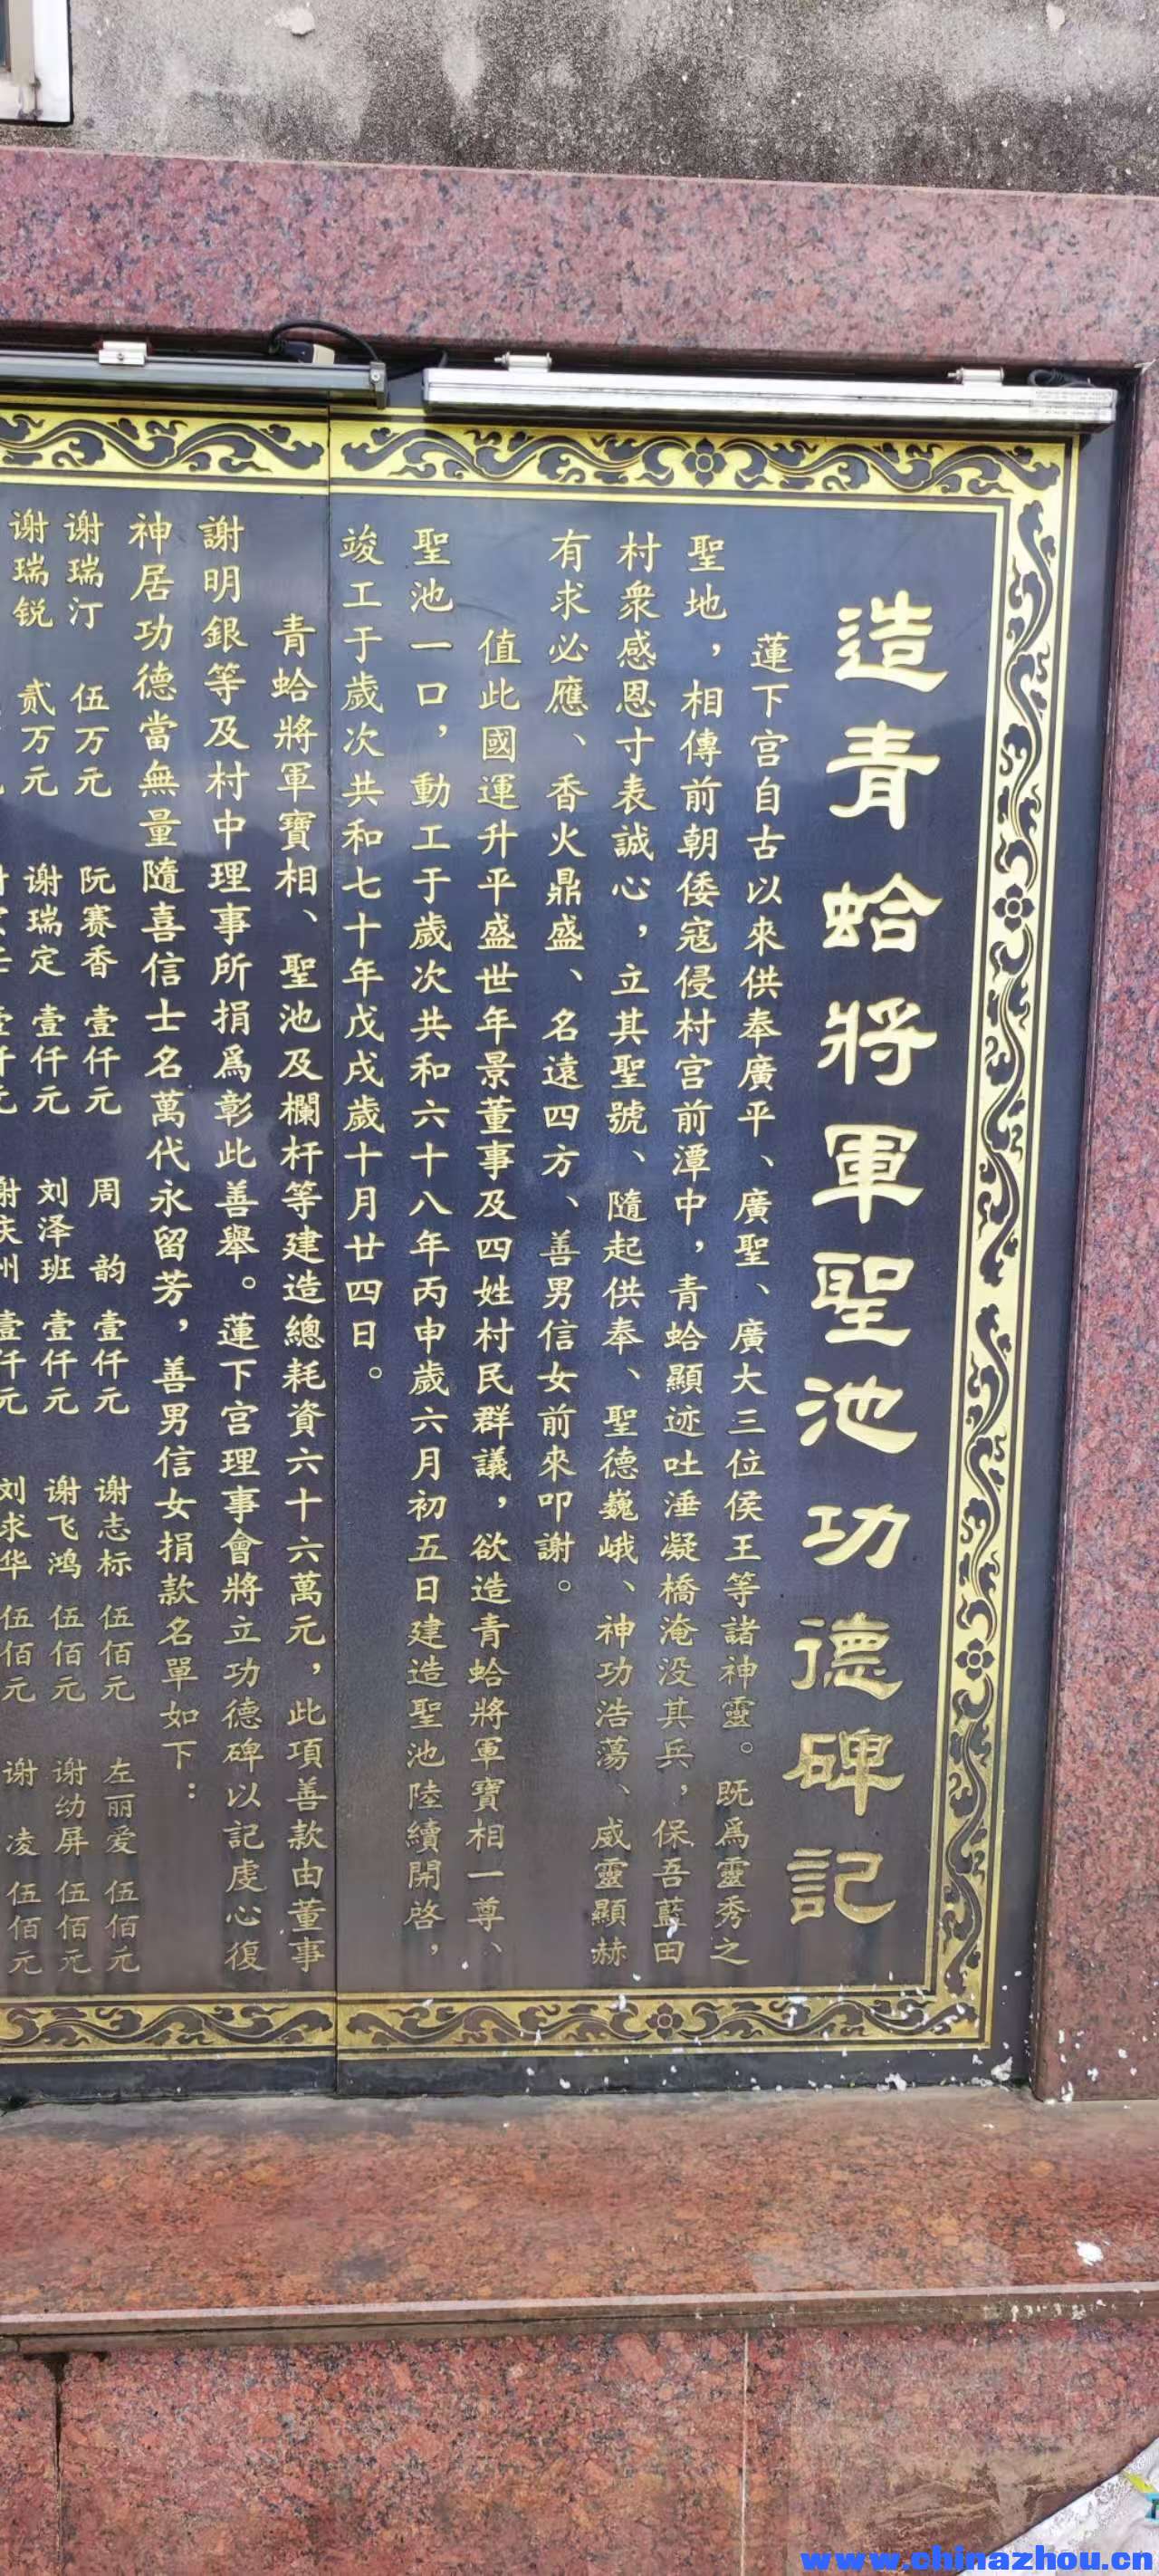 造青蛤將軍聖池功德碑記
蓮下宫自古以來供奉廣平、廣聖、廣大三位侯王等諸神靈。既爲靈秀之
聖地，相傳前朝倭寇侵村宫前潭中，青蛤顯迹吐涶凝橋淹没其兵，保吾藍田
村衆感恩寸表誠心，立其聖號、隨起供奉、聖德巍峨、神功浩蕩、威靈顯赫
有求必應、香火鼎盛、名遠四方、善男信女前來叩謝。
值此國運升平盛世年景董事及四姓村民群議，欲造青蛤將軍寶相一尊、
聖池一口，動工于歲次共和六十八年丙申歲六月初五日建造聖池陸續開啓，
竣工于歲次共和七十年戊戌歲十月廿四日。
青蛤將軍寶相、聖池及欄杆等建造總耗資六十六萬元，此項善款由董事
謝明銀等及村中理事所捐爲彰此善舉。蓮下宫理事會將立功德碑以記虔心復
神居功德當無量隨喜信士名萬代永留芳，善男信女捐款名單如下：
谢瑞汀 伍万元 阮赛香 壹仟元 周韵 壹仟元 谢志标 伍佰元 左丽爱 伍佰元
谢瑞锐 贰万元 谢瑞定 壹仟元 刘泽班 壹仟元 谢飞鸿 伍佰元 谢幼屏 伍佰元
谢庆州 壹仟元 刘求华 伍佰元 谢凌 伍佰元
www.chinazhou.cn